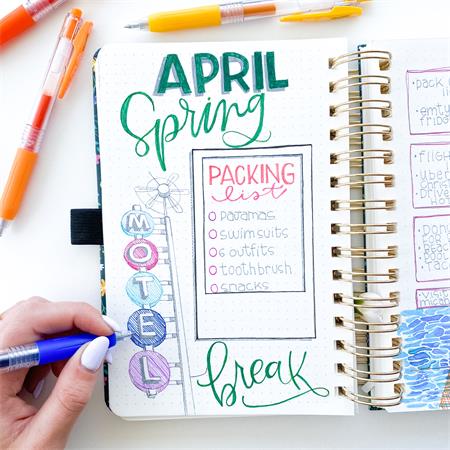 APRIL
Spring
PACKING
list
pajamas
swimsuits
6 outfits
toothbrush
snacks
MOTEL
break
• pack
• emty
fridge
• Uber
• Drive
FOR
• Visit